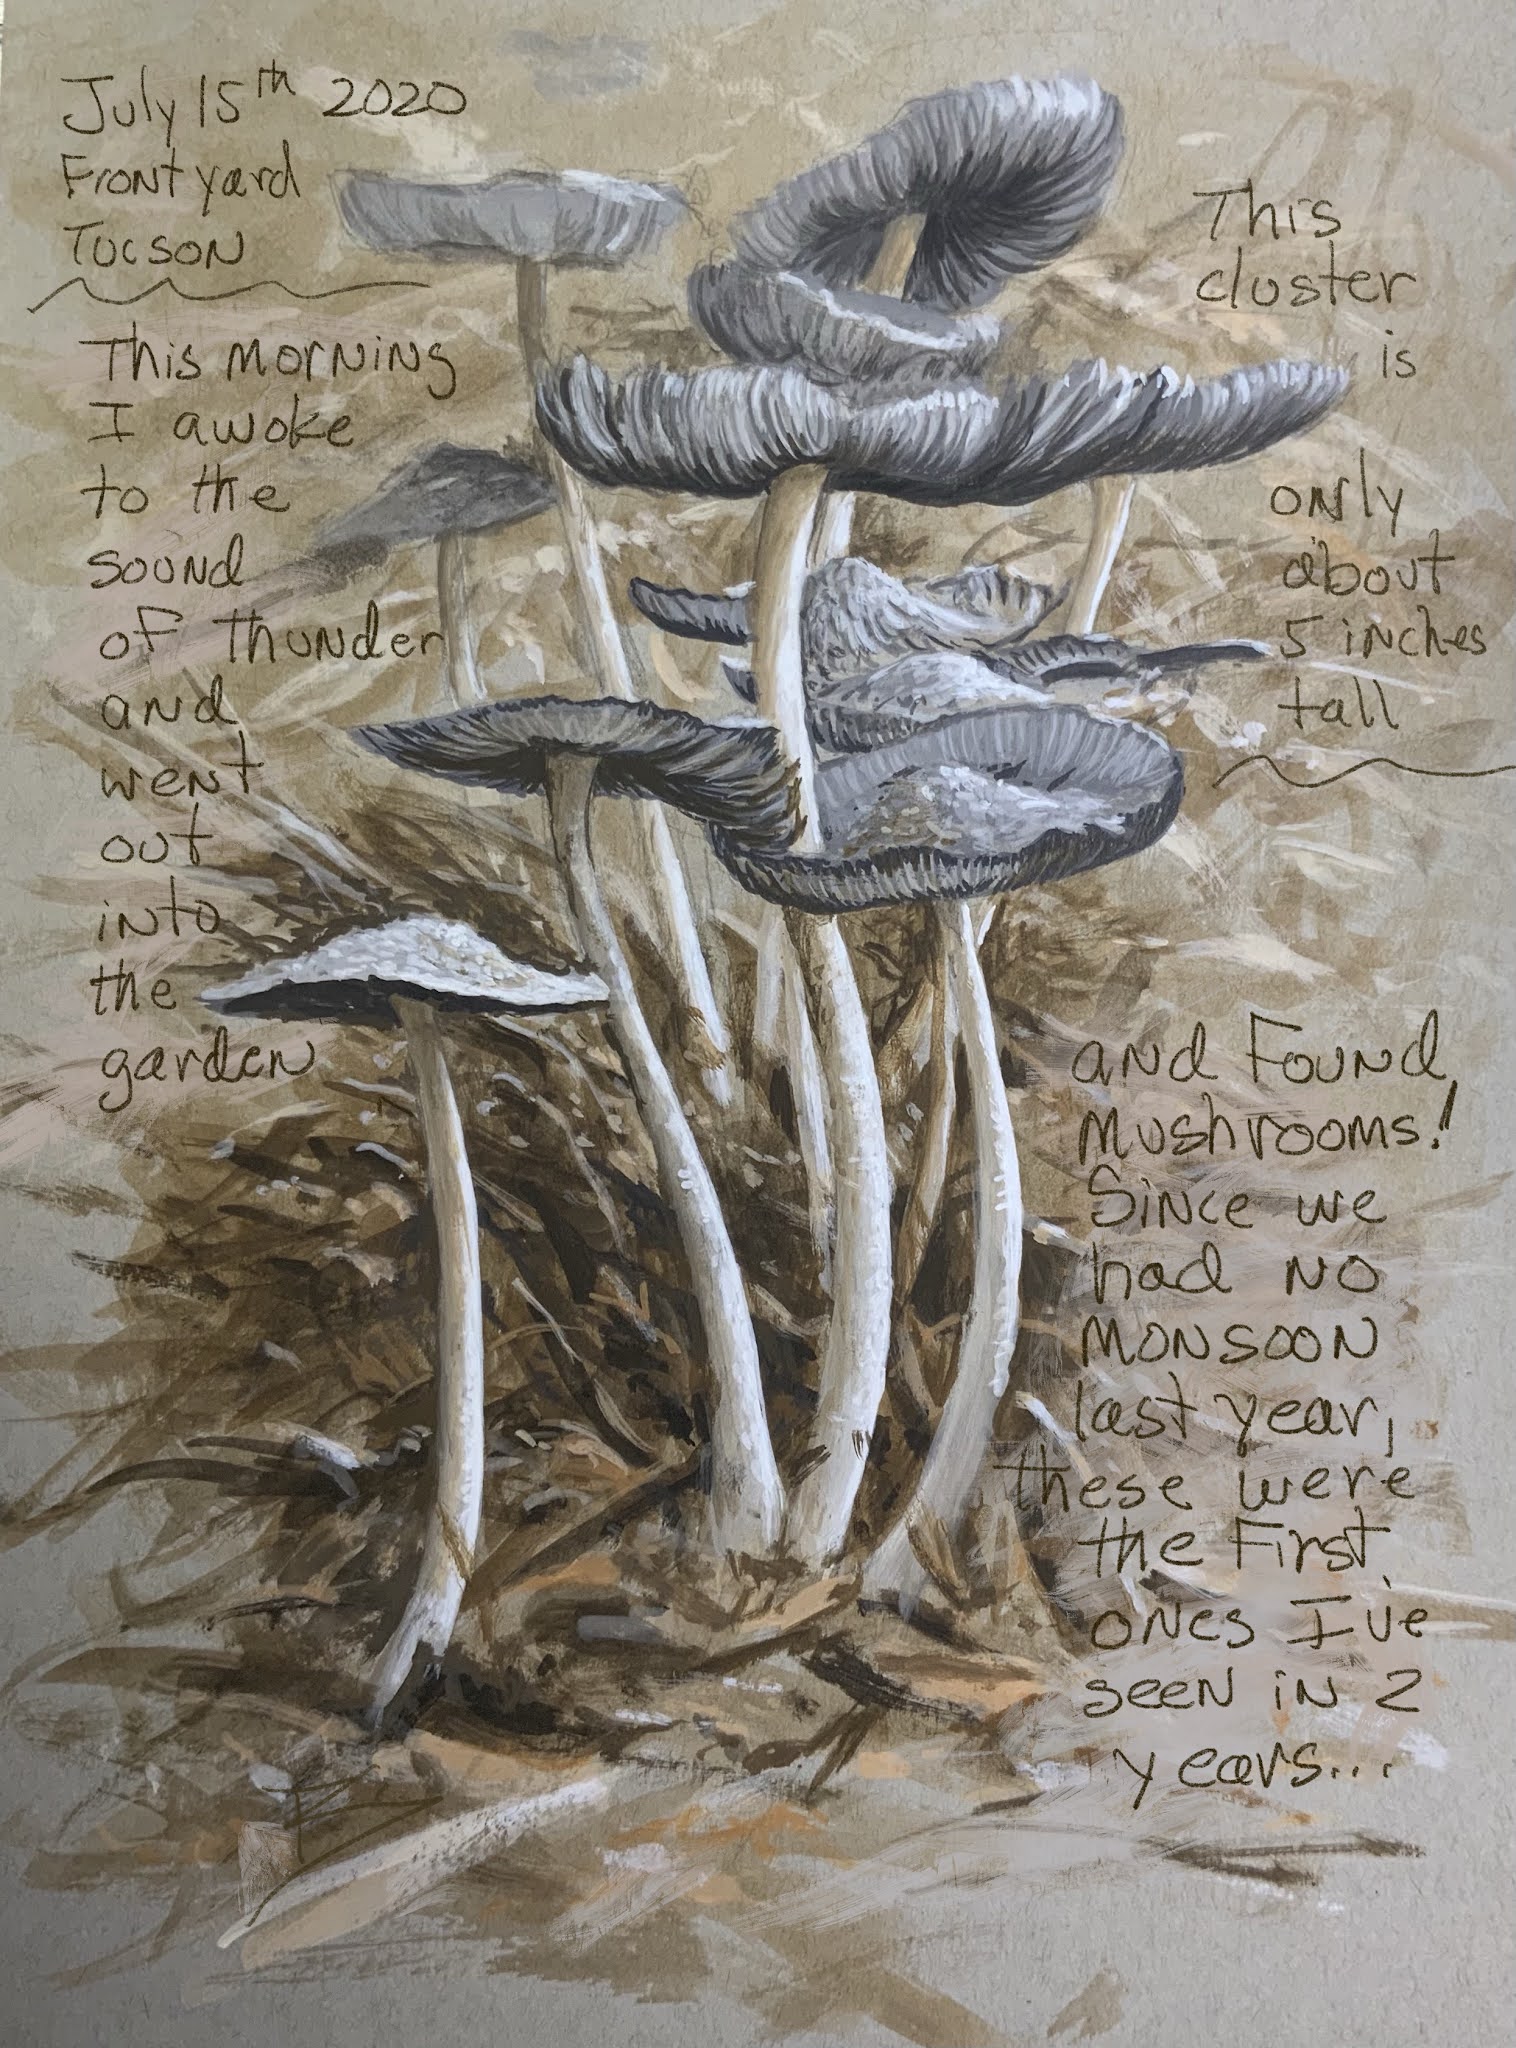 July 15th 2020
Front yard
Tucson
This morning
I awoke
to the
sound
of thunder
and
went
out
into
the
garden
This
cluster
is
only
about
5 inches
tall
and found
mushrooms!
Since we
had no
monsoon
last year,
these were
the first
ones I've
seen in 2
years...